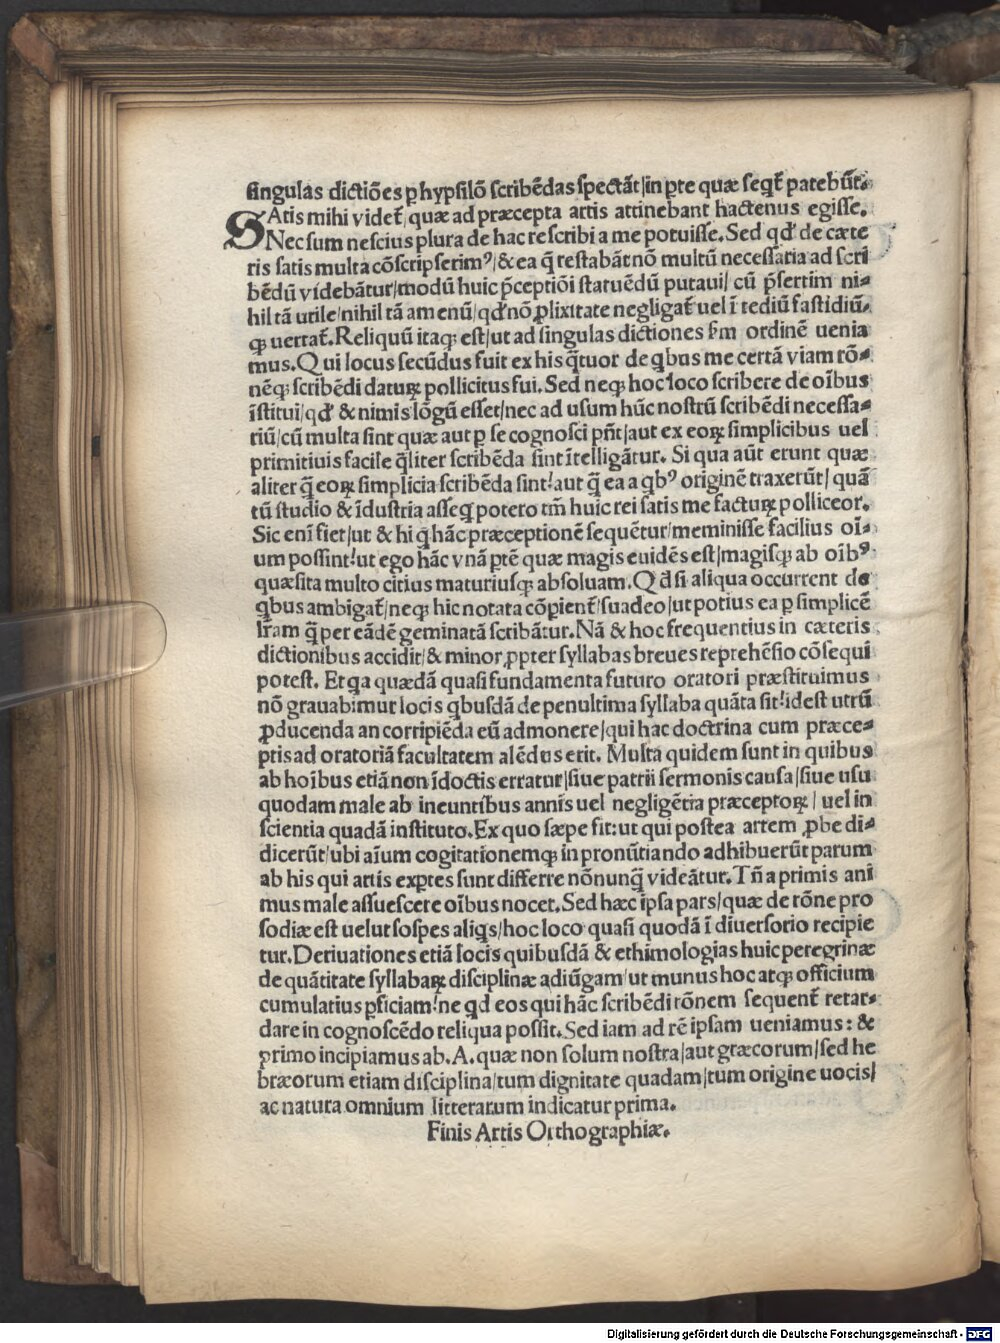 singulas dictiōes ꝑ hypsilō scribēdas spectāt/in ꝑte quæ seqt̄ patebūt.
SAtis mihi videt̄ quæ ad præcepta artis attinebant hactenus egisse.
Nec sum nescius plura de hac re scribi a me potuisse. Sed qd' de cæte
ris satis multa cōscripserimꝰ/& ea q̄ restabāt nō multū necessaria ad scri
bēdū videbātur/modū huic p̄ceptiōi statuēdū putaui/ cū p̄sertim ni⸗
hil tā utile/nihil tā amenū/qd' nō ꝓlixitate negligat̄ uel ī tediū fastidiū⸗
qꝫ uertat̄. Reliquū itaqꝫ est/ut ad singulas dictiones ẜm ordinē uenia
mus. Qui locus secūdus fuit ex his q̄tuor de qbus me certā viam rō⸗
nēqꝫ scribēdi daturꝝ pollicitus fui. Sed neqꝫ hoc loco scribere de oībus
īstitui/qd' & nimis lōgū esset/nec ad usum hūc nostrū scribēdi necessa⸗
riū/cū multa sint quæ aut ꝑ se cognosci pn̄t/aut ex eoꝝ simplicibus uel
primitiuis facile q̄liter scribēda sint ītelligātur. Si qua aūt erunt quæ
aliter q̄ eoꝝ simplicia scribēda sint/aut q̄ ea a qbꝰ originē traxerūt/quā
tū studio & īdustria asseq potero tm̄ huic rei satis me facturꝝ polliceor.
Sic enī fiet/ut & hi q hāc præceptionē sequētur/meminisse facilius oī⸗
um possint/ut ego hāc vnā ꝑtē quæ magis euidēs est/magisqꝫ ab oībꝰ
quæsita multo citius maturiusqꝫ absoluam. Qd̄ si aliqua occurrent de
qbus ambigat̄/neqꝫ hic notata cōpient̄/suadeo/ut potius ea ꝑ simplicē
lr̄am q̄ per eādē geminatā scribātur. Nā & hoc frequentius in cæteris
dictionibus accidit/& minor ꝓpter syllabas breues reprehēsio cōsequi
potest. Et qa quædā quasi fundamenta futuro oratori præstituimus
nō grauabimur locis qbusdā de penultima syllaba quāta sit/idest utrū
ꝓducenda an corripiēda eū admonere/qui hac doctrina cum præce⸗
ptis ad oratoriā facultatem alēdus erit. Multa quidem sunt in quibus
ab hoībus etiā non īdoctis erratur/siue patrii sermonis causa/siue usu
quodam male ab ineuntibus annis uel negligētia præceptoꝝ/ uel in
scientia quadā instituto. Ex quo sæpe fit: ut qui postea artem ꝓbe di⸗
dicerūt/ubi aīum cogitationemqꝫ in pronūtiando adhibuerūt parum
ab his qui artis exꝑtes sunt differre nōnunq̄ videātur. Tn̄ a primis ani
mus male assuescere oībus nocet. Sed hæc ipsa pars/quæ de rōne pro
sodiæ est uelut sospes aliqs/hoc loco quasi quodā ī diuersorio recipie
tur. Deriuationes etiā locis quibusdā & ethimologias huic peregrinæ
de quātitate syllabaꝝ disciplinæ adiūgam/ut munus hoc atqꝫ officium
cumulatius ꝑficiam/ne qd eos qui hāc scribēdi rōnem sequent̄ retar⸗
dare in cognoscēdo reliqua possit. Sed iam ad rē ipsam ueniamus: &
primo incipiamus ab. A. quæ non solum nostra/aut græcorum/sed he
bræorum etiam disciplina/tum dignitate quadam/tum origine uocis/
ac natura omnium litterarum indicatur prima.
Finis Artis Orthographiæ.
Digitalisierung gefördert durch die Deutsche Forschungsgemeinschaft - DFG